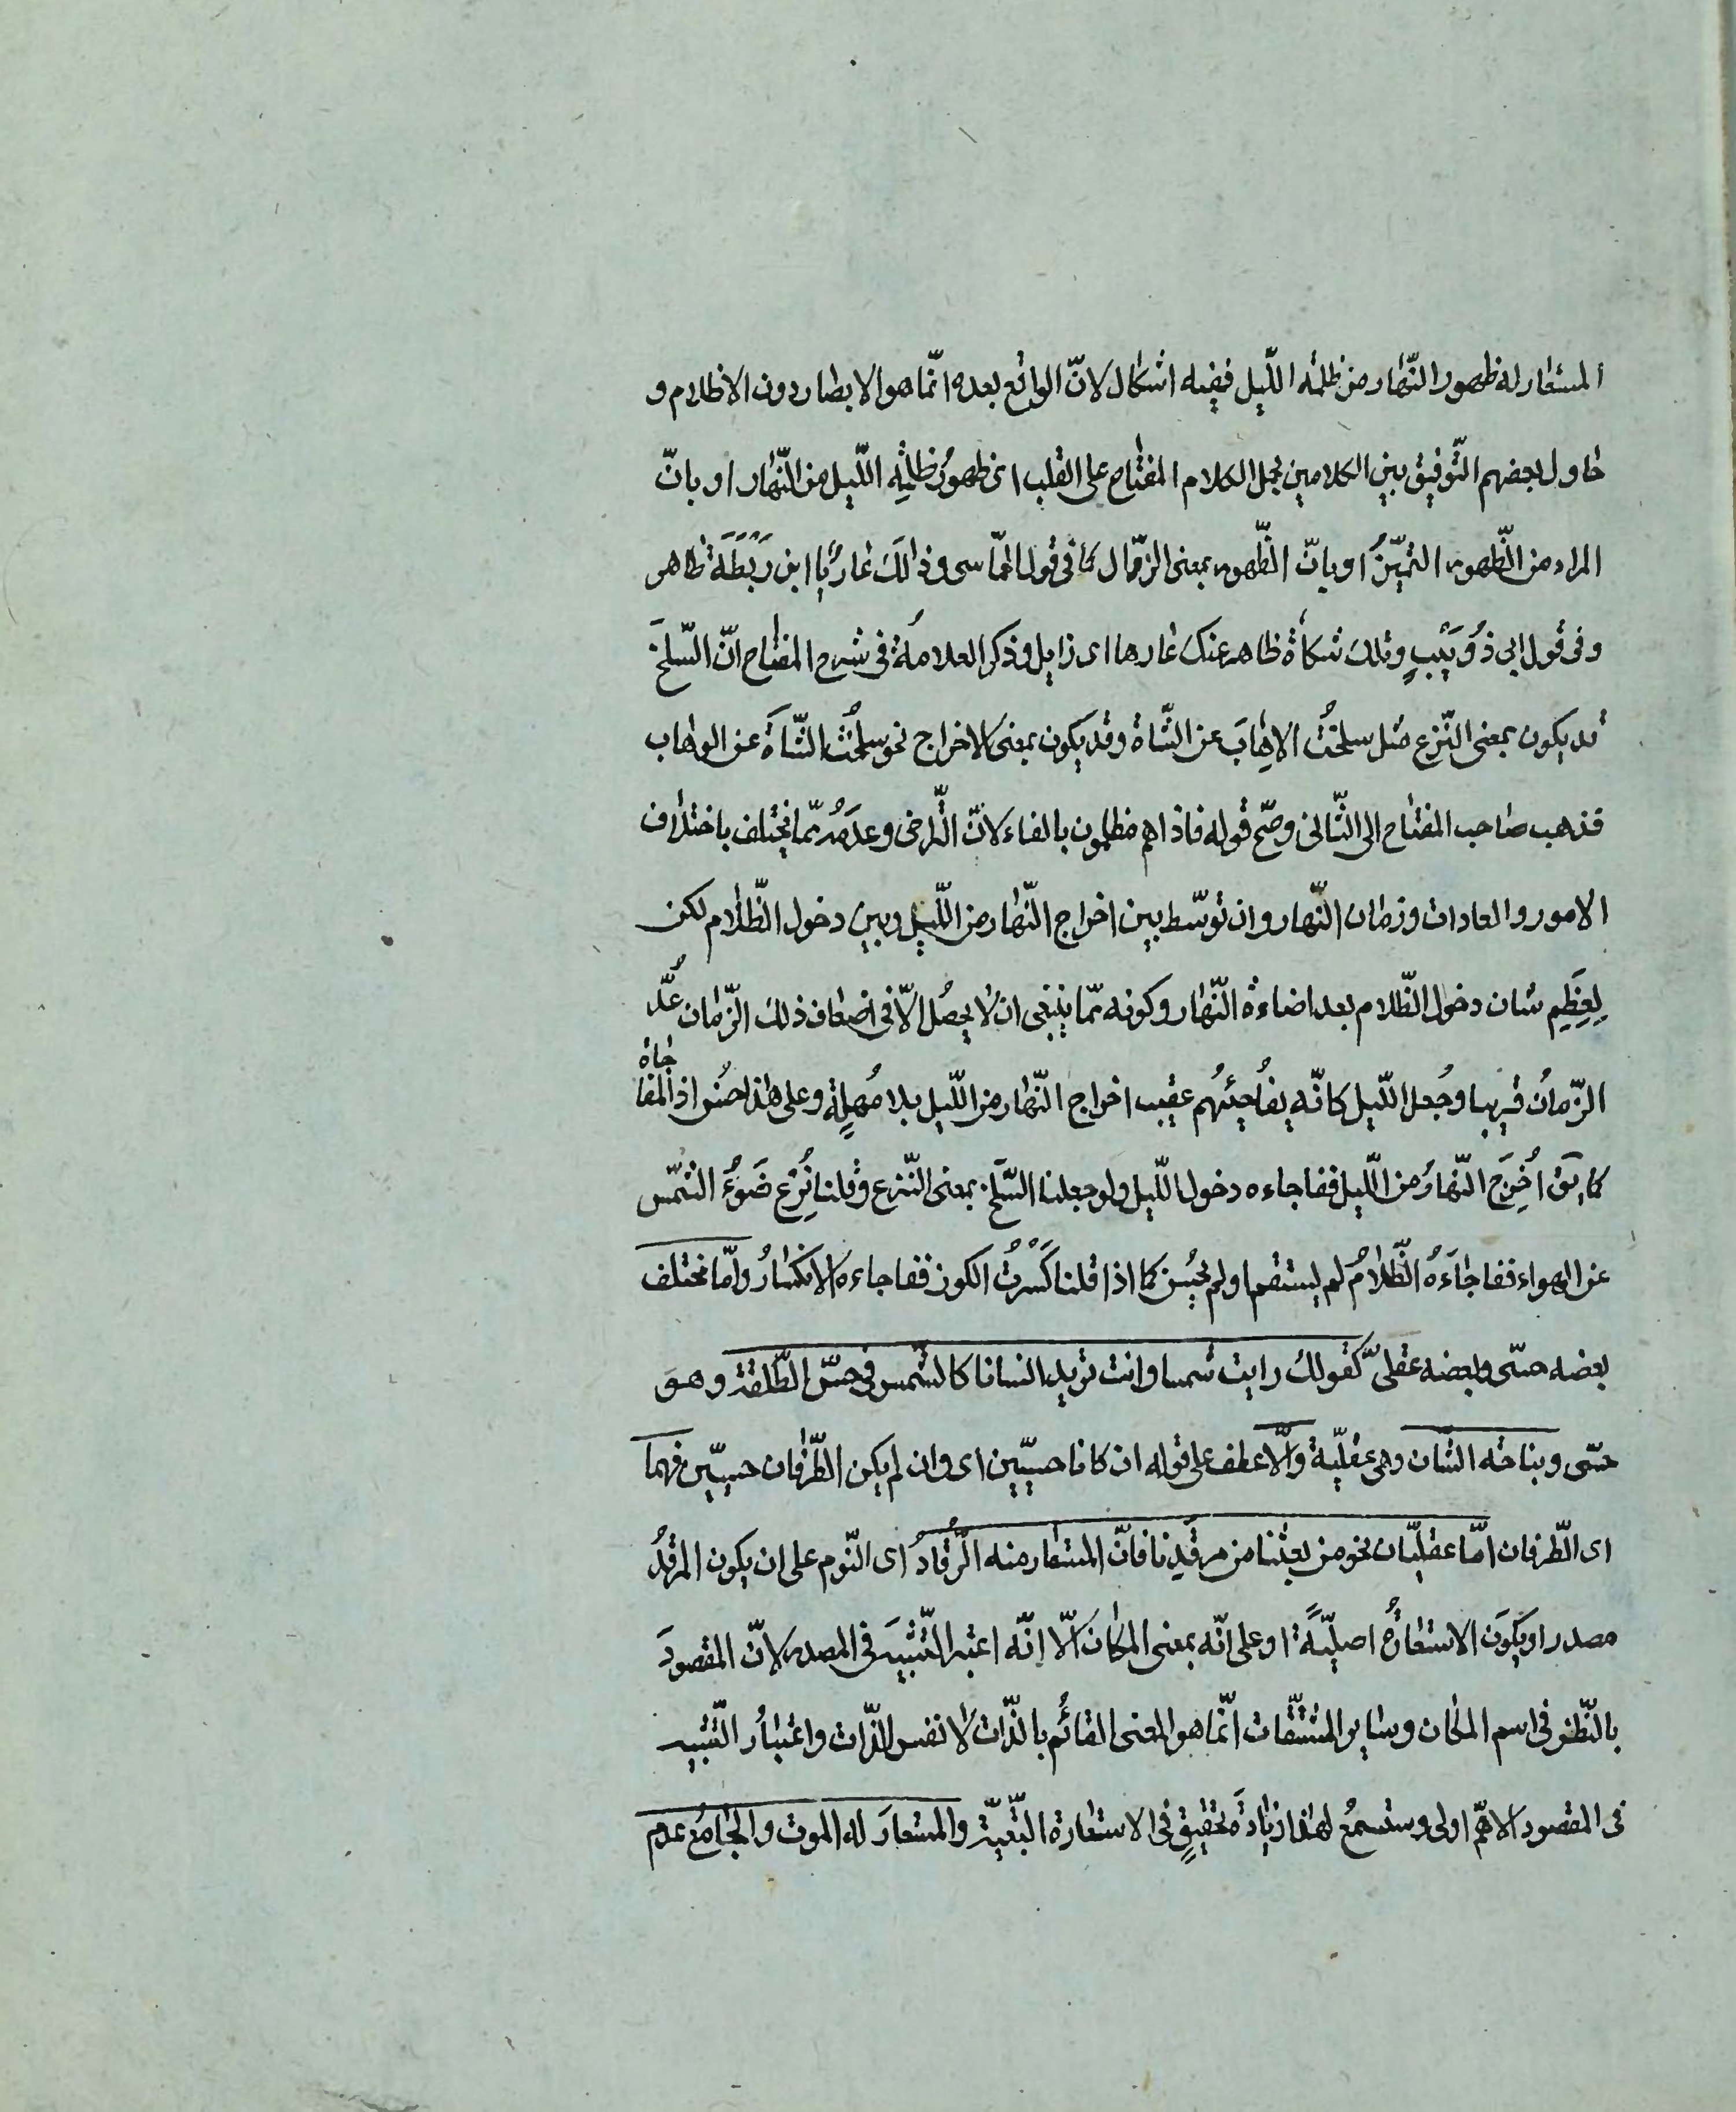 المستعار له ظهور النّهار من ظلمة اللّيل ففيه اشكال لانّ الواقع بعده انّما هو الابصار دون الاظلام و
حاول بعضهم التّوفيق بين الكلامين بحمل الكلام المفتاح على القلب اى ظهورُ ظلمةِ اللّيل من النّهار او بانّ
المراد من الظّهور التميّزُ او بانّ الظّهور بمعنى الزّوال كما فى قول الحماسى وذلكَ عارٌ يا ابن رَيْطَةَ ظاهر
و فى قول ابى ذُوَيْبٍ وتلك شكاة ظاهر عنك عارها اى زايل و ذكر العلامةُ فى شرح المفتاح انّ السّلخَ
قد يكون بمعنى النّزع مثل سلختُ الاِهابَ عن الشّاة وقد يكون بمعنى الاخراج نحو سلختُ الشّاةَ عن الاهاب
فذهب صاحب المفتاح الى الثّانى وصحّ قوله فاذا هم مظلمون بالفاء لانّ التّراخى وعدَمَهُ ممّا يختلف باختلاف
الامور و العادات و زمان النّهار وان توسّط بين اخراج النّهار من اللّيل وبين دخول الظّلام لكن
لِعِظَمِ شان دخول الظّلام بعد اضاءة النّهار وكونه ممّا ينبغى ان لا يحصُل الّا فى اضعاف ذلك الزّمان عُدَّ
الزّمانُ قريبا وجُعل اللّيل كانّه يفُاجِئُهُم عقيب اخراج النّهار من اللّيل بلا مُهلةٍ وعلى هذا حسُن اذا المفاجاة
كما يق اُخرِجَ النّهارُ من اللّيل ففاجاءه دخول اللّيل ولو جعلنا السّلخ بمعنى النّزع وقلنا نُزِع ضَوْءُ الشّمس
عن الهواء ففاجاءَهُ الظّلامُ لم يستقم او لم يحسُن كما اذا قلنا كَسَرْتُ الكوز ففاجاءه الانكسارُ وامّا مختلف
بعضه حسّى وبعضه عقلىّ كقولك رايت شمسا وانت تريد انسانا كالشّمس فى حسن الطّلعة وهو
حسّى و نباهة الشّان وهى عقليّة والّا عطف على قوله ان كانا حسيّين اى وان لم يكن الطّرفان حسيّين فهما
اى الطّرفان امّا عقليّان نحو من بعثنا من مرقدنا فانّ المستعار منه الرّقادُ اى النّوم على ان يكون المرقدُ
مصدرا ويكونَ الاستعارةُ اصليّةً او على انّه بمعنى المكان الّا انّه اعتبر التّشبيهَ فى المصدر لانّ المقصودَ
بالنّظر فى اسم المكان وساير المشتقّات انّما هو المعنى القائم بالذّات لا نفس الذّات واعتبارُ التّشبيه
فى المقصود الاهمّ اولى و ستسمعُ لهذا زيادةَ تحقيقٍ فى الاستعارة التّبعيّة والمستعارَ له الموت والجامعُ عدم